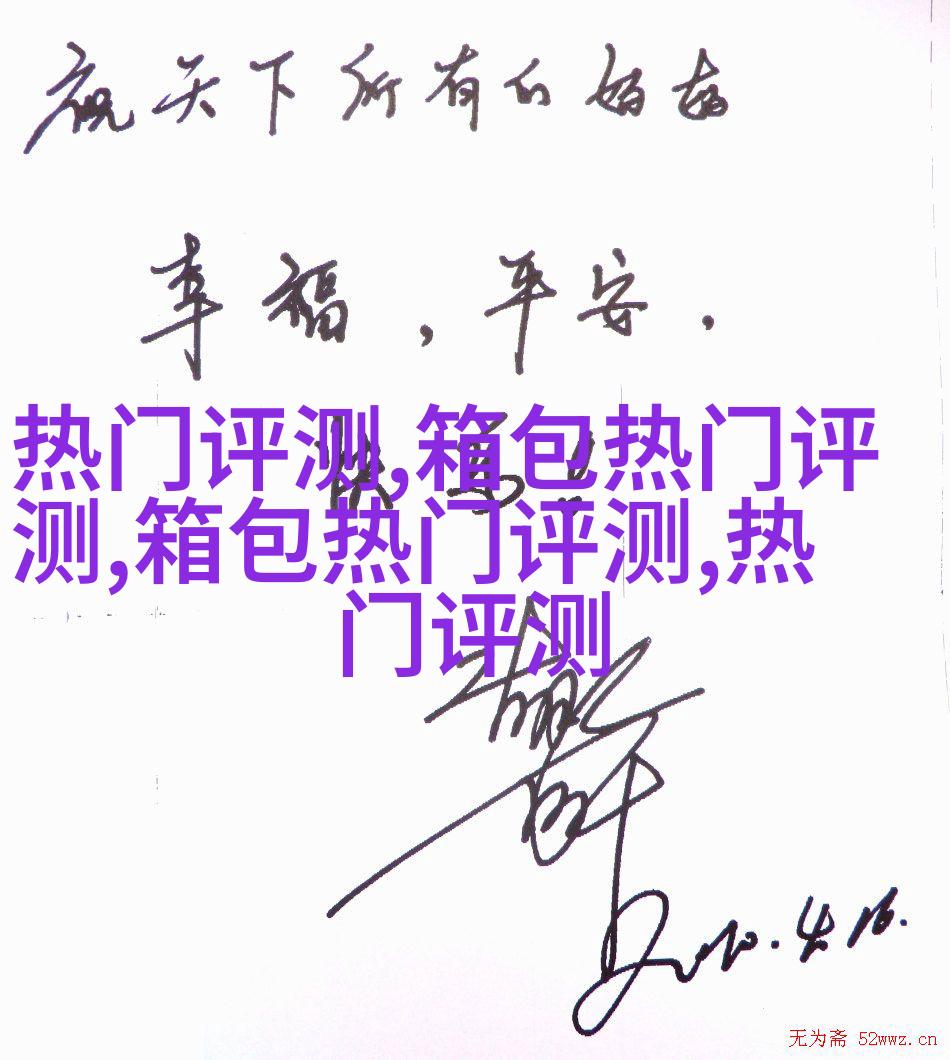 祝天下所有的妈妈
幸福，平安，
快乐！
热门评测,箱包热门评
测,箱包热门评测,热
门评测
2010.4.16.
无为斋 52wwz.cn